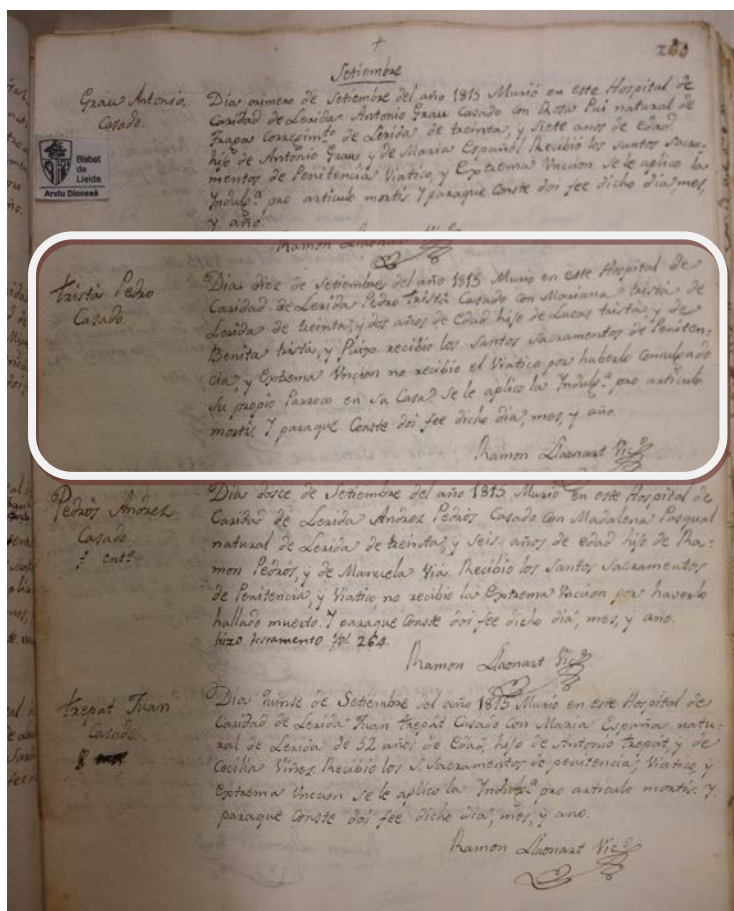 +
260
Setiembre
Grau Antonio
Casado.
Dia primero de Setiembre del año 1815 Murió en este Hospital de
Caridad de Lerida Antonio Grau Casado con Rosa Pui natural de
Fraga Corregimto de Lerida de treinta, y Siete anos de edad
hijo de Antonio Grau y de Maria Español Recibio los santos Sacra-
mentos de Penitencia Viatico, y Extrema Vncion. Se le aplico la
Yndulg.a pro articulo mortis. Y paraque Conste doi fee dicho dia, mes,
y año.
Ramon Llaonart Vic.o
Bisbat
de
Lleida
Arxiu Diocesà
tristá Pedro
Casado.
Dia diez de Setiembre del año 1815 Murio en este Hospital de
Caridad de Lerida Pedro tristá Casado con Mariana tristá de
Lerida de treinta, y dos años de edad hijo de Lucas tristá, y de
Benita tristá, y Puixo. recibio los Santos Sacramentos de Peniten-
cia, y Extrema Vncion no recibio el Viatico por haberlo Comulgado
Su propio Parroco en Sa Casa. se le aplico la Yndulg.a pro articulo
mortis. Y paraque Conste doi fee dicho dia, mes, y año.
Ramon Llaonart Vic.o
Pedrós Andrez
Casado.
ent.o
Dia dosce de Setiembre del año 1815 Murió en este Hospital de
Caridad de Lerida Andrez Pedrós Casado con Madalena Pasqual
natural de Lerida de treinta, y seis años de edad hijo de Ra-
mon Pedrós, y de Manuela Viá. Recibio los Santos Sacramentos
de Penitencia, y Viatico, no recibio la Extrema Vncion por haverlo
hallado muerto. Y paraque Conste doi fee dicho dia, mes, y año.
hizo testamento fol. 264.
Ramon Llaonart Vic.o
trepat Juan
Casado.
8
Dia Quinse de Setiembre del año 1815 Murió en este Hospital de
Caridad de Lerida Juan trepát Casado Con Maria España natu-
ral de Lerida de 52 años de Edad, hijo de Antonio trepát, y de
Cecilia Viñez Recibio los S. Sacramentos de penitencia, Viatico, y
Extrema Vncion Se le aplico la Yndulg.a pro articulo mortis. Y
paraque Conste doi fee dicho dia, mes, y ano.
Ramon Llaonart Vic.o